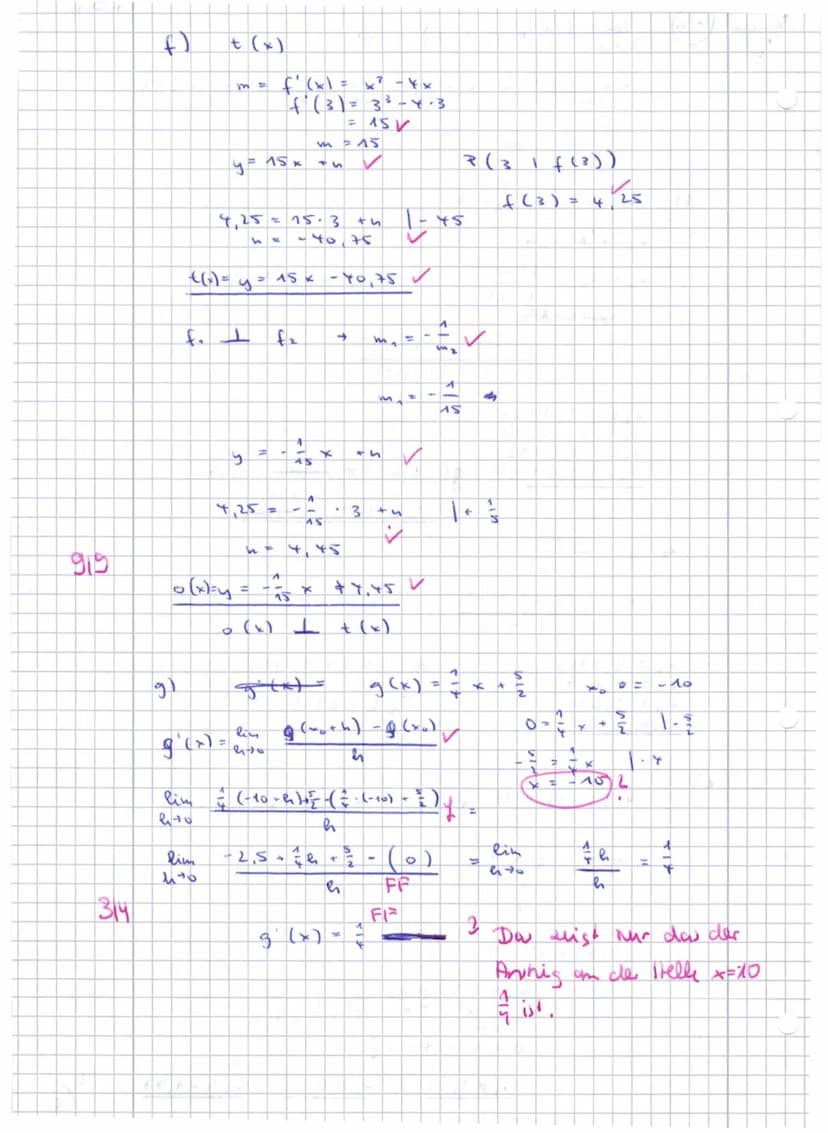 f) t(x)
m = f'(x) = x² - 4x
f'(3) = 3³ - 4·3
= 15 ✓
m = 15
y = 15x + n ✓ P(3 | f(3))
f(3) = 4,25 ✓
4,25 = 15·3 + n |- 45
n = -40,75 ✓
t(x) = y = 15x - 40,75 ✓
f₁ ⊥ f₂ → m₁ = -1/m₂ ✓
m₁ = -1/15
y = -1/15 x + n ✓
4,25 = -1/15 · 3 + n |+ 1/5
n = 4,45 ✓
9/9
o(x)=y = -1/15 x + 4,45 ✓
o(x) ⊥ t(x)
g) g(x) = 1/4 x + 5/2 x₀ = -10
g'(x) = lim h→0 (g(x₀+h) - g(x₀))/h ✓ 0 = 1/4 x + 5/2 |- 5/2
-5/2 = 1/4 x |· 4
x = -10 ?
lim h→0 (1/4 (-10+h)+5/2-(1/4·(-10)+5/2))/h =
lim h→0 (-2,5 + 1/4h + 5/2 - (0))/h = lim h→0 (1/4 h)/h = 1/4
FF
3/4
g'(x) = 1/4 FF ? Das zeigt nur das der
Anstieg an der Stelle x=-10
1/4 ist.